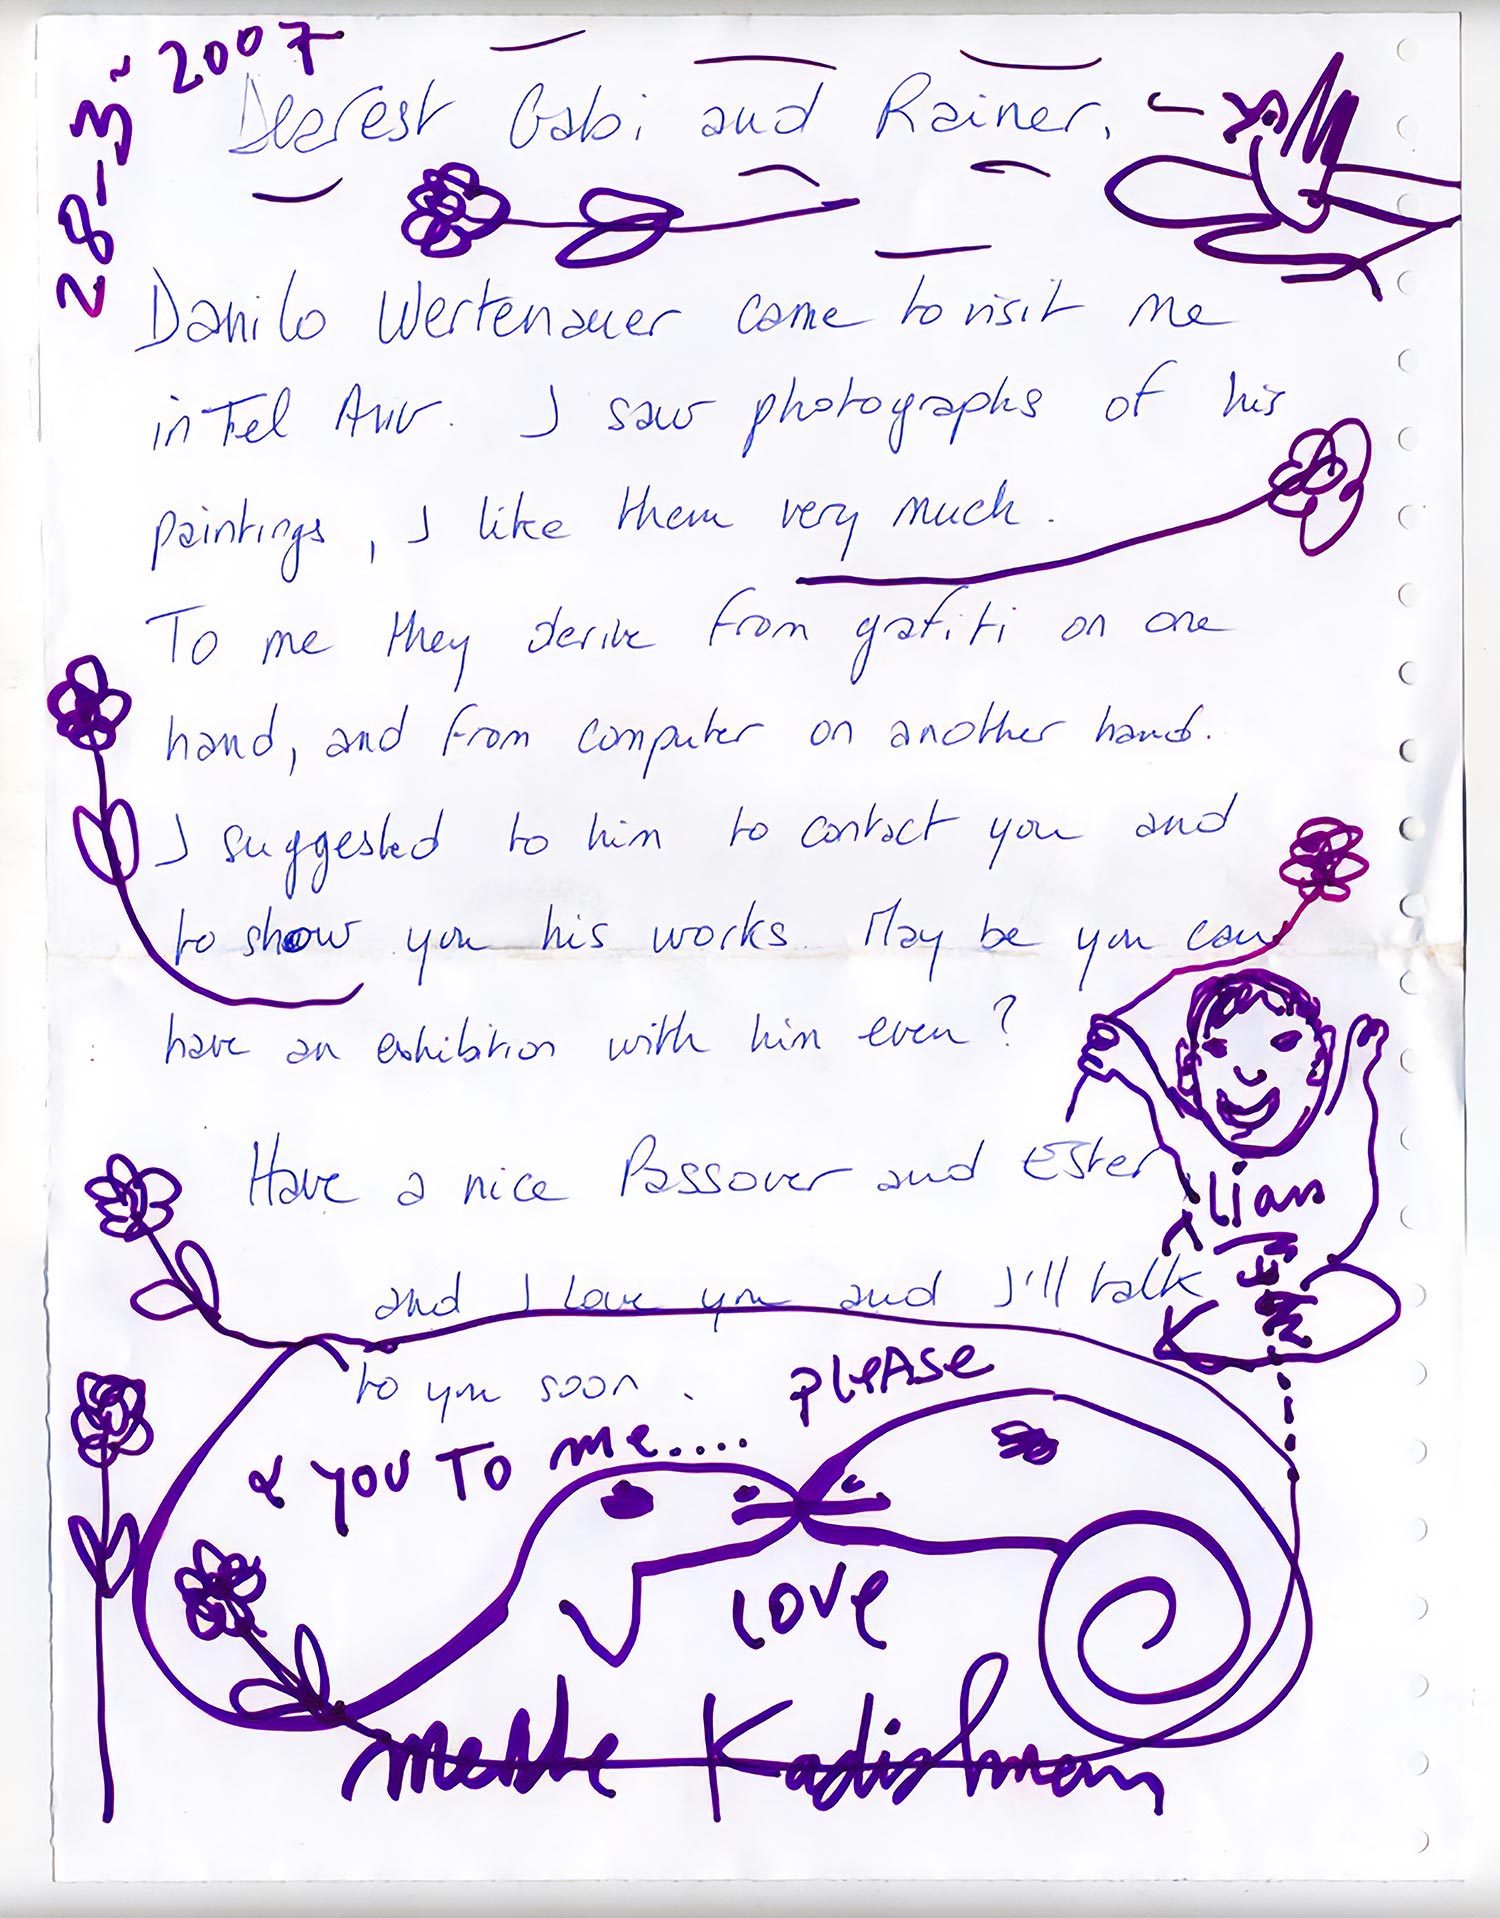 28-3-2007
Dearest Gabi and Rainer,
Danilo Wertenauer came to visit me
in Tel Aviv. I saw photographs of his
paintings, I like them very much.
To me they derive from grafiti on one
hand, and from computer on another hand.
I suggested to him to contact you and
to show you his works. May be you can
have an exhibition with him even?
Have a nice Passover and Ester
and I love you and I'll talk
to you soon.
PLEASE
& YOU TO me....
LOVE
Kadishman